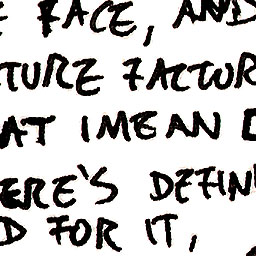 FACE, AND
TURE FACTOR
AT I MEAN
ERE'S DEFIN
D FOR IT,